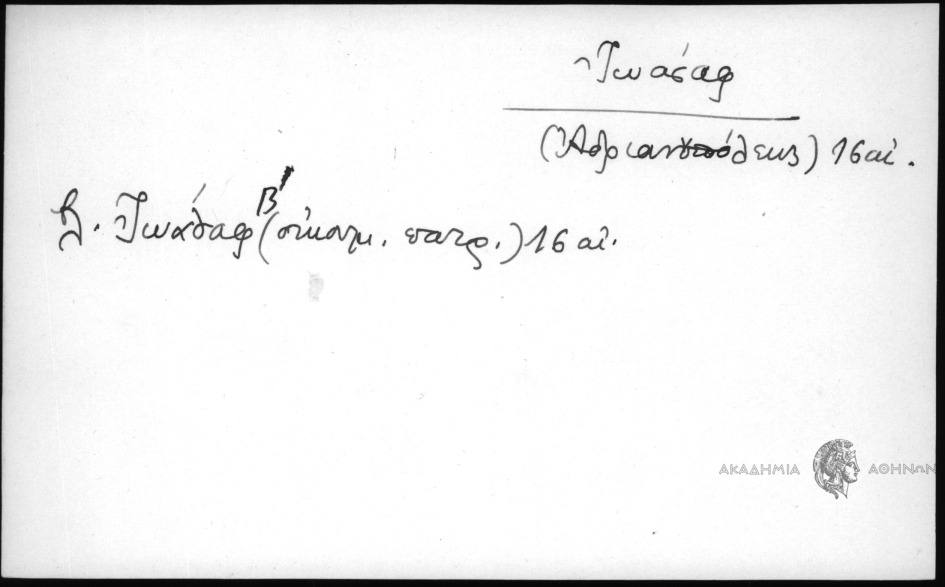 Ἰωάσαφ
(Ἀδριανουπόλεως) 16 αἰ.
βλ. Ἰωάσαφ Β΄ (οἰκουμ. πατρ.) 16 αἰ.
ΑΚΑΔΗΜΙΑ ΑΘΗΝΩΝ